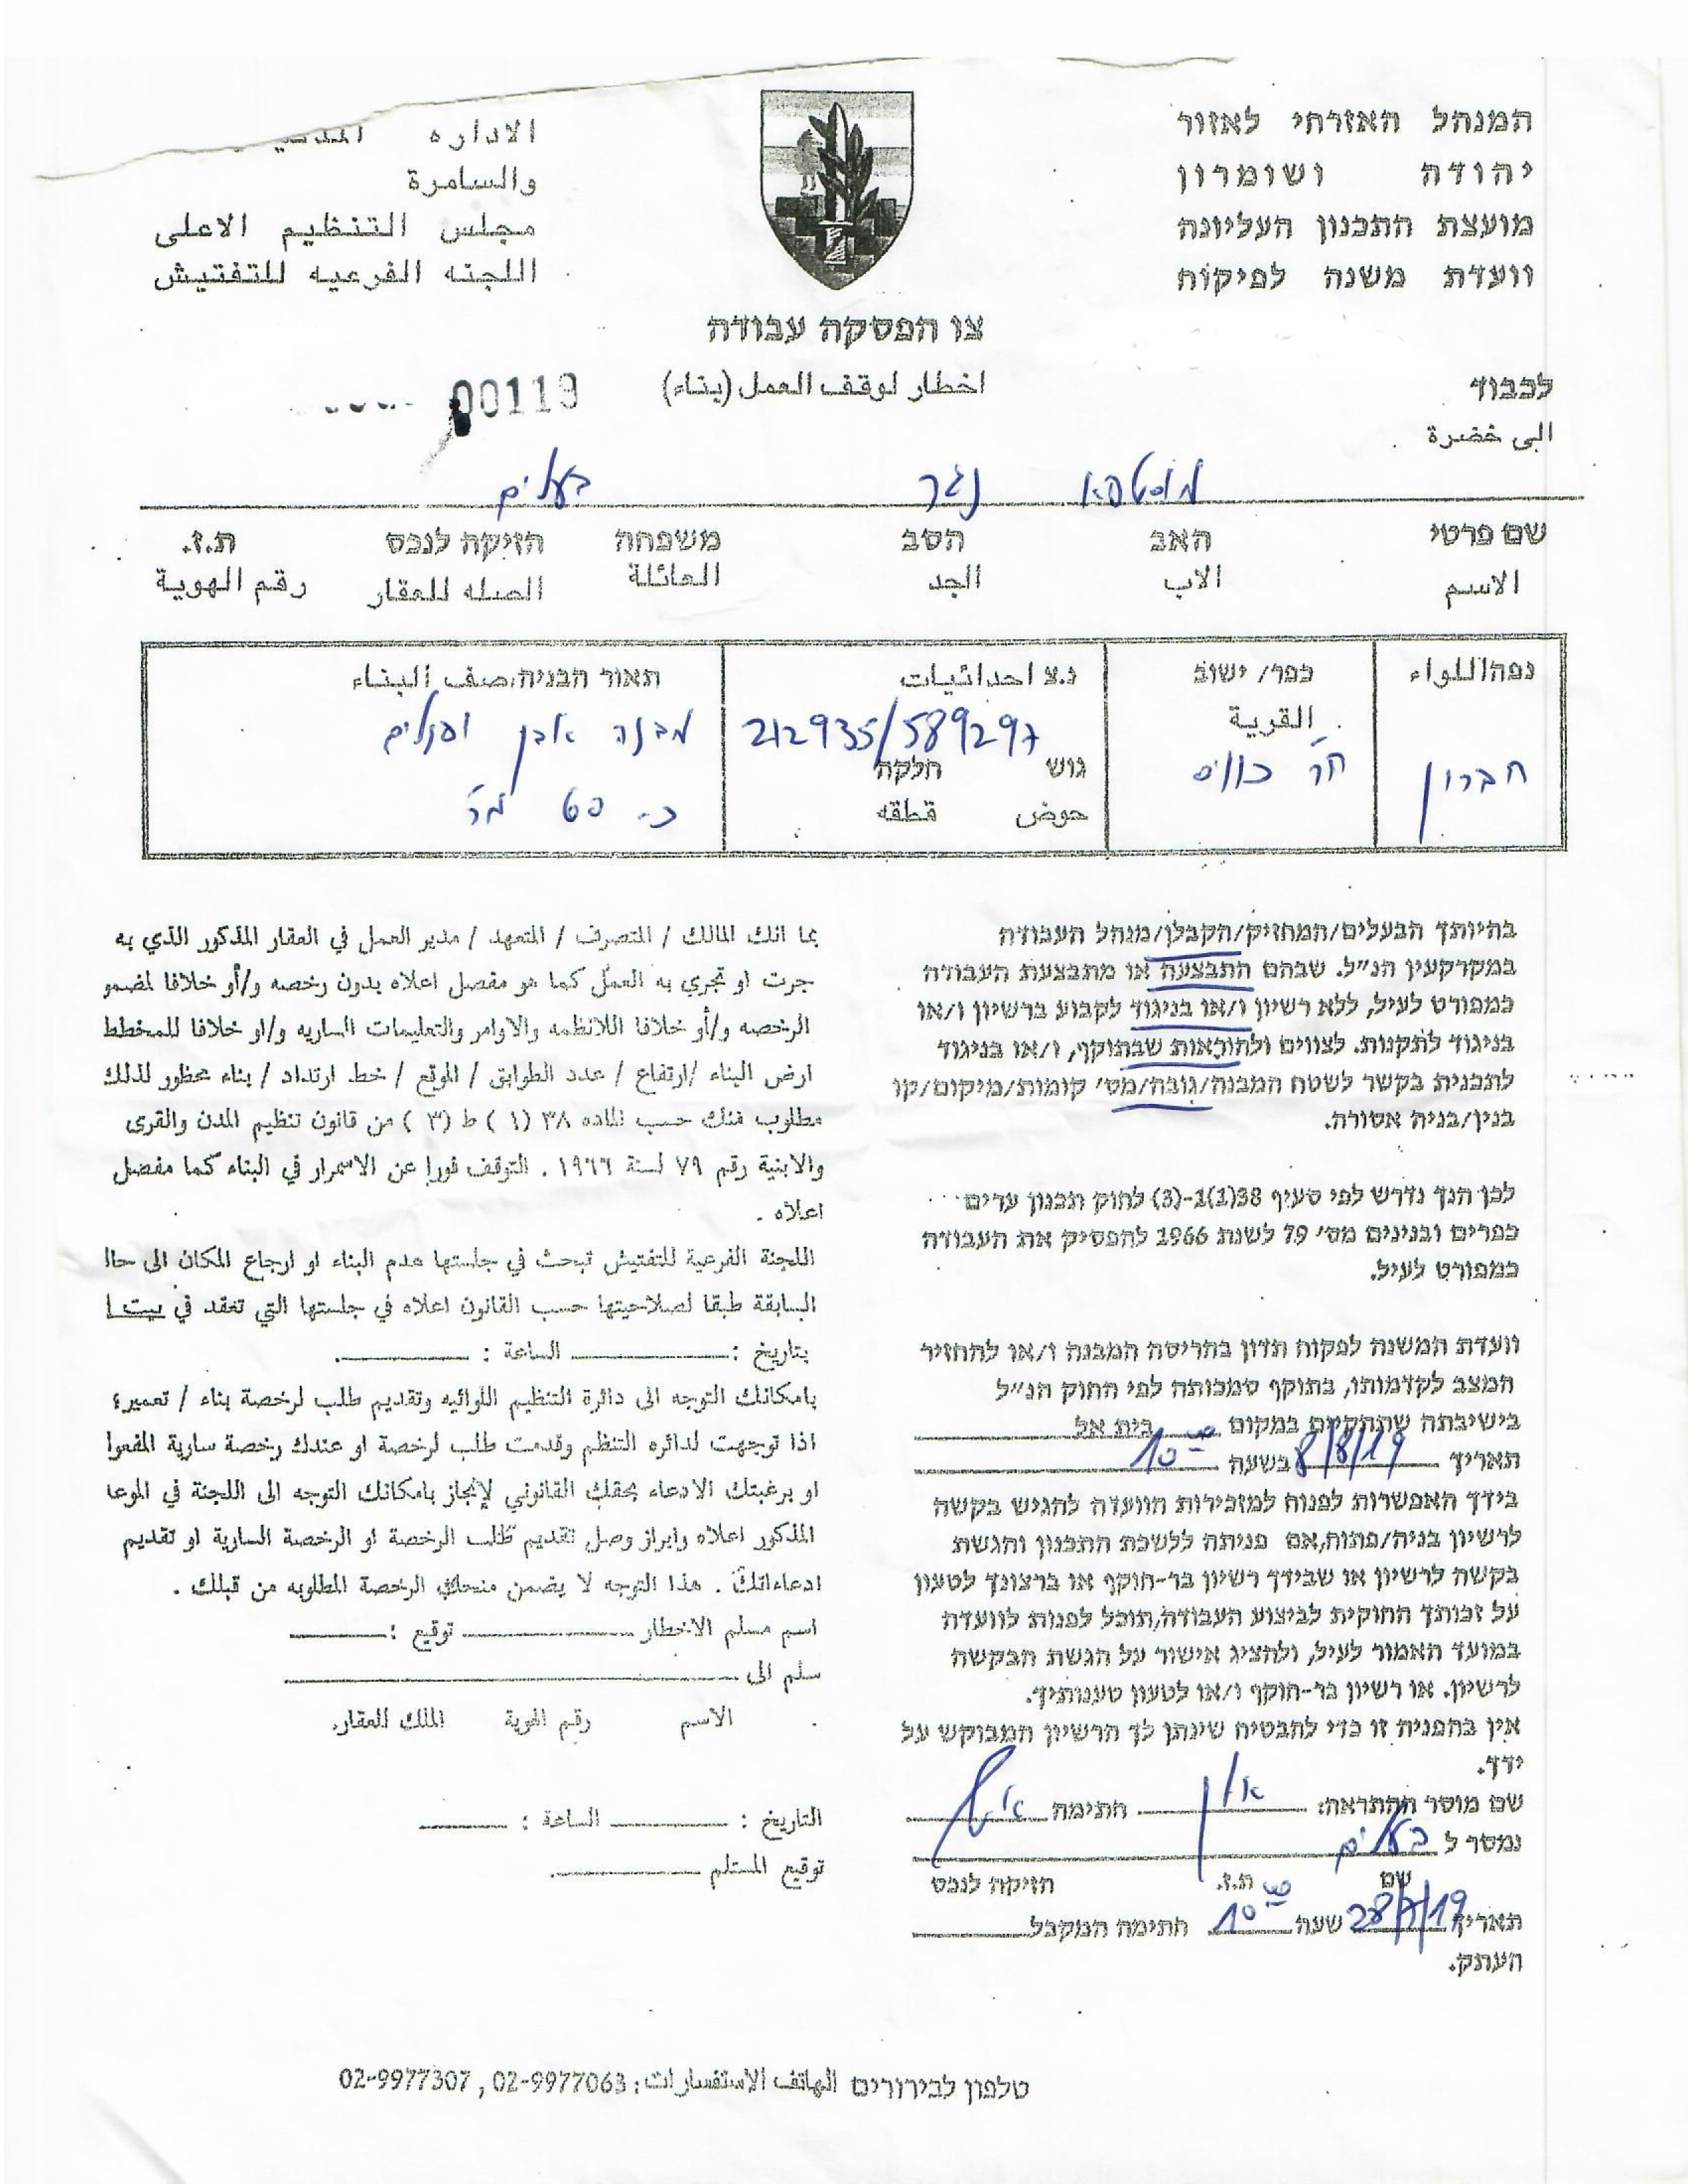 המנהל האזרחי לאזור
יהודה ושומרון
מועצת התכנון העליונה
וועדת משנה לפיקוח
الاداره
والسامرة
مجلس التنظيم الاعلى
اللجنه الفرعيه للتفتيش
צו הפסקה עבודה
اخطار لوقف العمل (بناء)
00119
לכבוד
الى حضرة
מוסטפא נג'ר בעלים
שם פרטי האב הסב משפחה הזיקה לנכס ת.ז.
الاسم الاب الجد العائلة الصله للعقار رقم الهوية
נפה/اللواء
חברון
כפר/ ישוב
القرية
נ.צ احداثيات
212935/589297
גוש חלקה
حوض قطقه
תאור הבניה/صف البناء
מבנה אבן
כ- 60 מ"ר
בהיותך הבעלים/המחזיק/הקבלן/מנהל העבודה
במקרקעין הנ"ל. שבהם התבצעה או מתבצעת העבודה
כמפורט לעיל, ללא רשיון ו/או בניגוד לקבוע ברשיון ו/או
בניגוד לתקנות. לצווים ולהוראות שבתוקף, ו/או בניגוד
לתכנית בקשר לשטח המבנה/גובה/מס' קומות/מיקום/קו
בנין/בניה אסורה.
לכן הנך נדרש לפי סעיף 38(1)1-(3) לחוק תכנון ערים
כפרים ובנינים מס' 79 לשנת 1966 להפסיק את העבודה
כמפורט לעיל.
וועדת המשנה לפקוח תדון בהריסה המבנה ו/או להחזיר
המצב לקדמותו, בתוקף סמכותה לפי החוק הנ"ל
בישיבתה שתתקיים במקום בית אל
תאריך 8/8/19 בשעה 10 00
בידך האפשרות לפנות למזכירות הוועדה להגיש בקשה
לרשיון בניה/פתוח,אם פניתה ללשכת התכנון והגשת
בקשה לרשיון או שבידך רשיון בר-חוקף או ברצונך לטעון
על זכותך החוקית לביצוע העבודה,תוכל לפנות לוועדה
במועד האמור לעיל, ולהציג אישור על הגשת הבקשה
לרשיון. או רשיון בר-חוקף ו/או לטעון טענותיך.
אין בהפנית זו כדי להבטיח שינתן לך הרשיון המבוקש על
ידך.
שם מוסר ההתראה: חתימה
נמסר ל בעלים
שם ת.ז. חזיקה לנכס
תאריך 28/7/19 שעה 10 00 חתימה המקבל
העתק.
بما انك المالك / المتصرف / المتعهد / مدير العمل في العقار المذكور الذي به
جرت او تجري به العمل كما هو مفصل اعلاه بدون رخصه و/أو خلافا لمضمو
الرخصه و/أو خلافا اللانظمه والاوامر والتعليمات الساريه و/او خلافا للمخطط
ارض البناء /ارتفاع / عدد الطوابق / الموقع / خط ارتداد / بناء محظور لذلك
مطلوب منك حسب الماده ٣٨ (١ ) ط (٣ ) من قانون تنظيم المدن والقرى
والابنية رقم ٧٩ لسنة ١٩٦٦ . التوقف فورا عن الاسمرار في البناء كما مفصل
اعلاه .
اللجنة الفرعية للتفتيش تبحث في جلستها هدم البناء او ارجاع المكان الى حالا
السابقة طبقا لصلاحيتها حسب القانون اعلاه في جلستها التي تعقد في بيت ا
بتاريخ : الساعة : .
بامكانك التوجه الى دائرة التنظيم اللوائيه وتقديم طلب لرخصة بناء / تعمير؛
اذا توجهت لدائره التنظم وقدمت طلب لرخصة او عندك رخصة سارية المفعوا
او برغبتك الادعاء بحقك القانوني لإنجاز بامكانك التوجه الى اللجنة في الموعا
المذكور اعلاه وابراز وصل تقديم طلب الرخصة او الرخصة السارية او تقديم
ادعاءاتك . هذا التوجه لا يضمن منحك الرخصة المطلوبه من قبلك .
اسم مسلم الاخطار توقيع :
سلم الى
الاسم رقم الهوية الملك للعقار.
التاريخ : الساعة :
توقيع المستلم .
טלפון לבירורים الهاتف الاستفسارات : 02-9977063 , 02-9977307